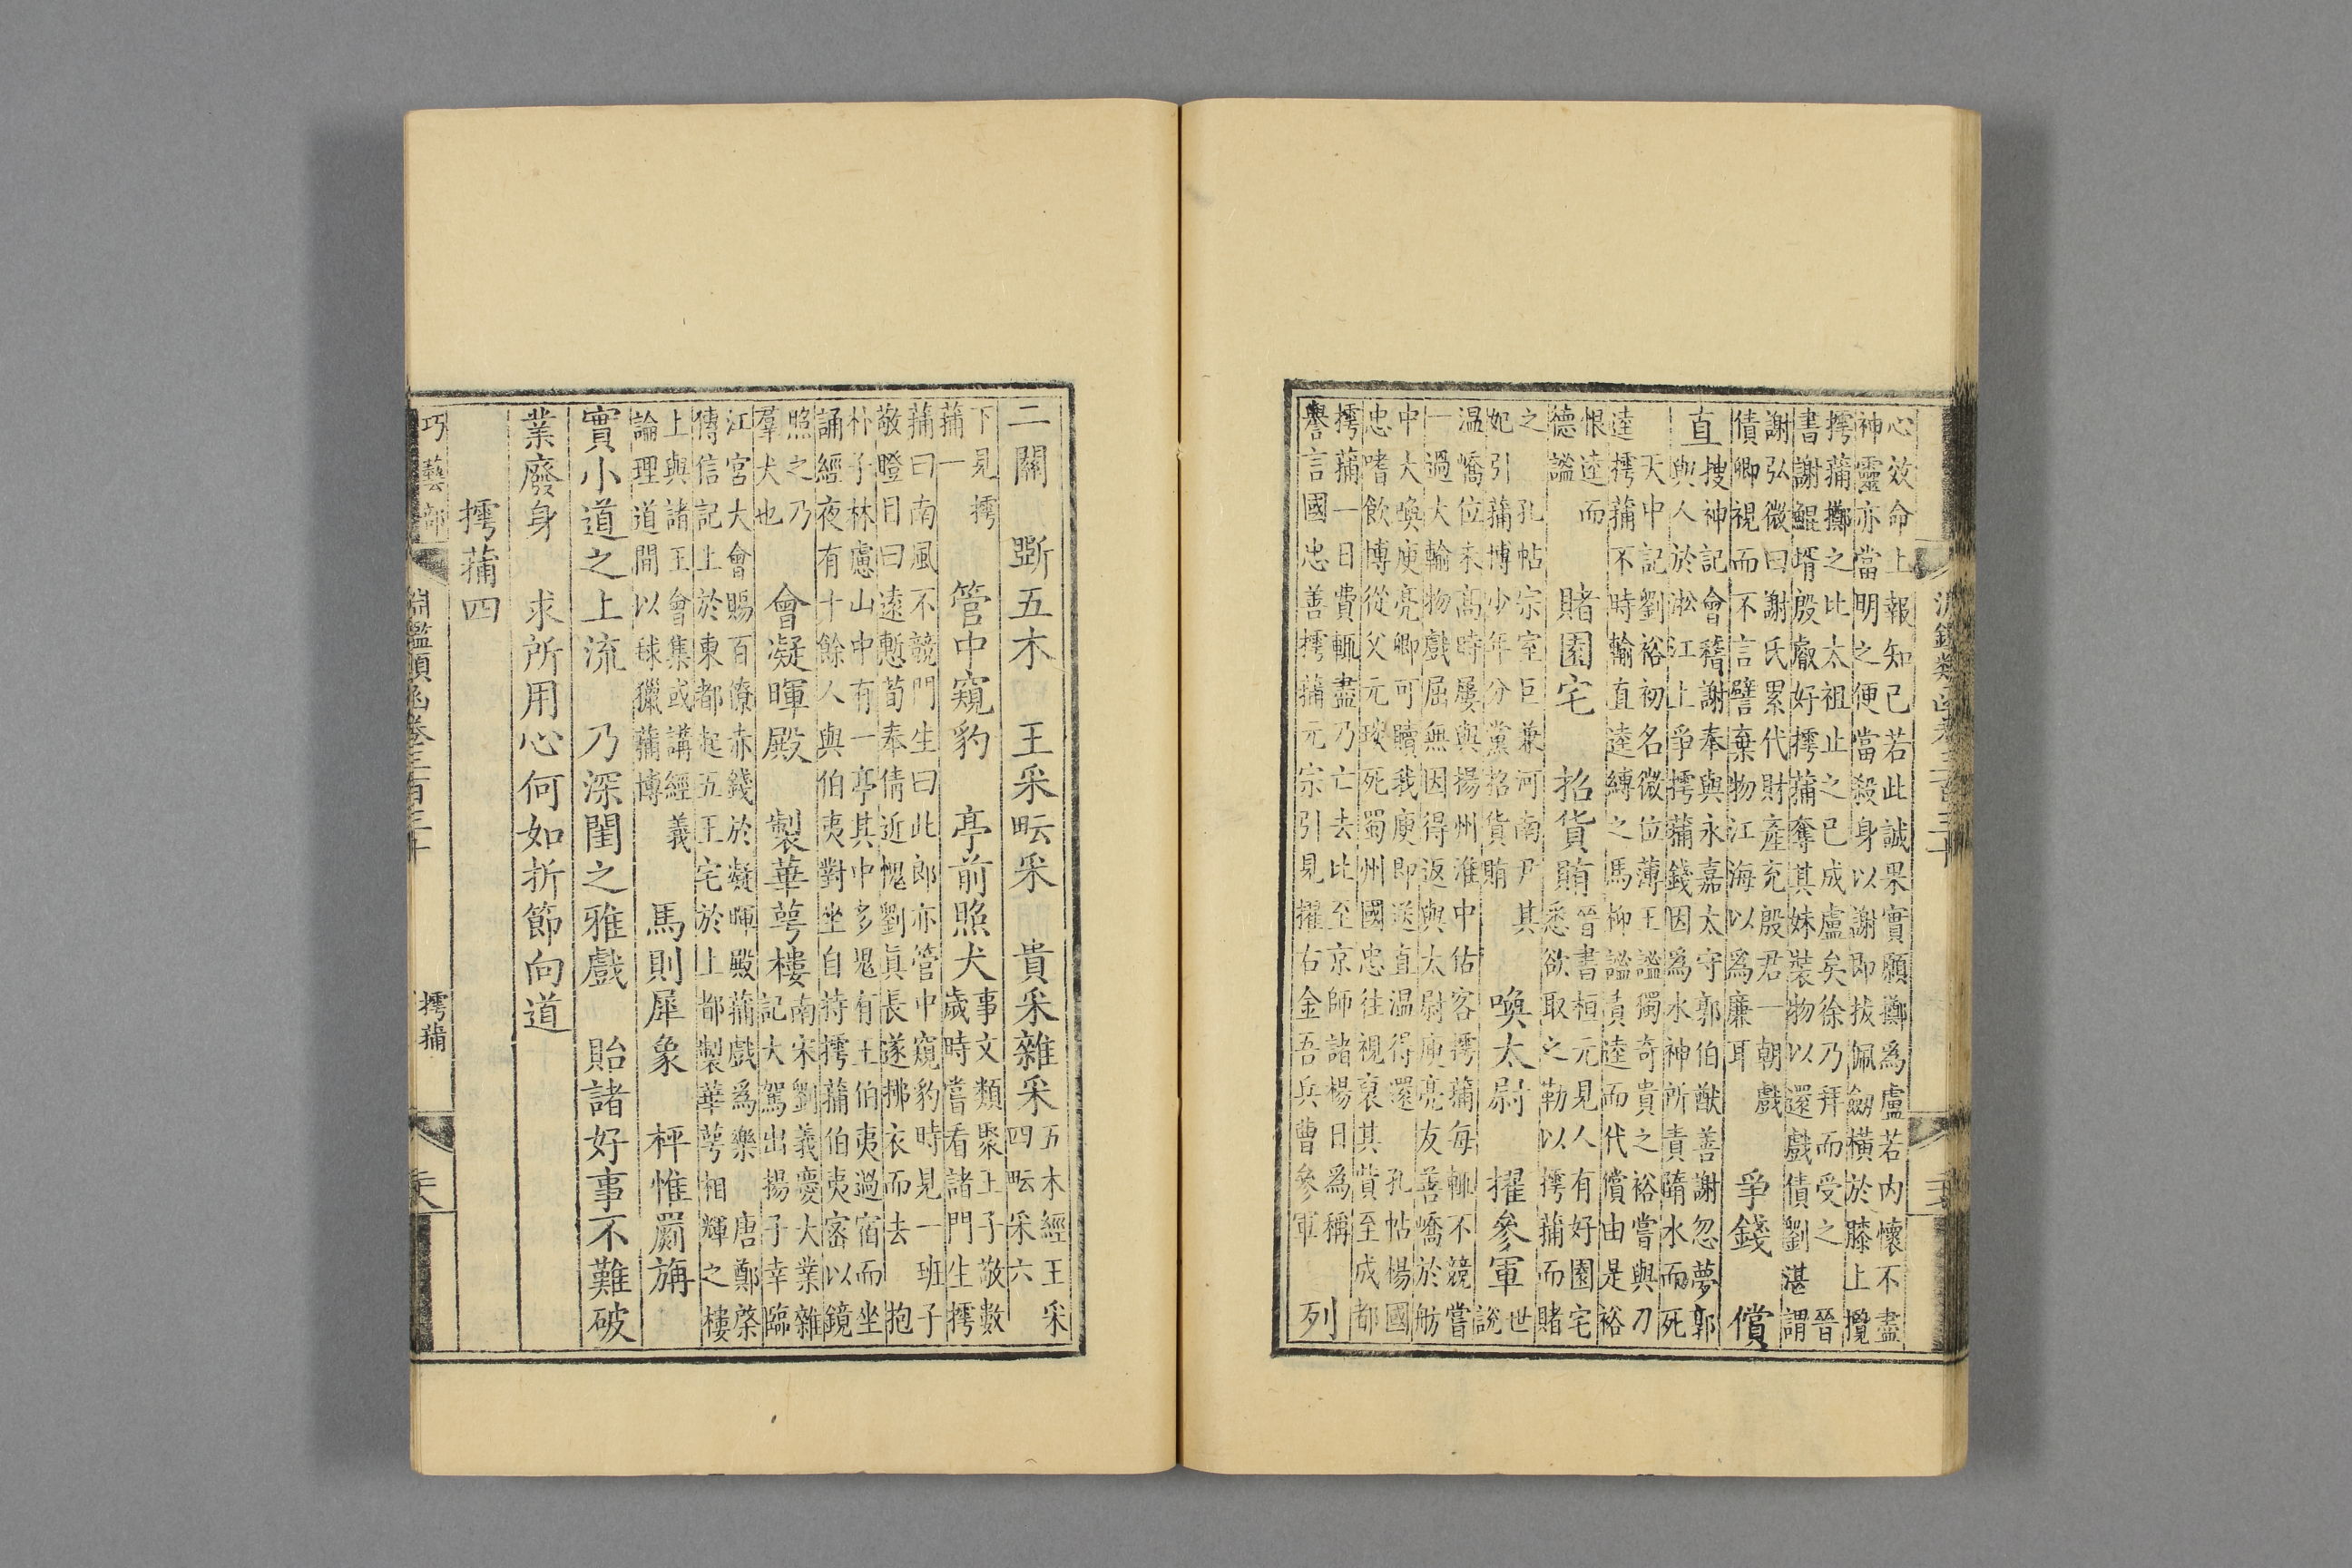 心效命上報知已若此誠果實願擲爲盧若内懷不盡
神靈亦當明之便當殺身以謝即拔佩劒橫於膝上攬
樗蒱擲之比太祖止之已成盧矣徐乃拜而受之　晉
書謝鯤壻殷叡好樗蒱奪其妹裝物以還戲債劉湛謂
謝弘微曰謝氏累代財產充殷君一朝戲
債卿視而不言譬棄物江海以爲廉耳
爭錢　償
直
搜神記會稽謝奉與永嘉太守郭伯猷善謝忽夢郭
與人於淞江上爭樗蒱錢因爲水神所責隋水而死
天中記劉裕初名微位薄王謐獨奇貴之裕嘗與刀
逵樗蒱不時輸直逵縛之馬柳謐責逵而代償由是裕
恨逵而
德謐
賭園宅　招貨賄
晉書桓元見人有好園宅
悉欲取之勒以樗蒱而賭
之　孔帖宗室巨兼河南尹其
妃引蒱博少年分黨招貨賄
喚太尉　擢參軍
世
說
温嶠位未高時屡與揚州淮中估客樗蒱每輒不競嘗
一過大輸物戲屈無因得返與太尉庾亮友善嶠於舫
中大喚庾亮卿可贖我庾即送直温得還　孔帖楊國
忠嗜飲博從父元琰死蜀州國忠往視衰其貲至成都
樗蒱一日費輒盡乃亡去比至京師諸楊日爲稱
譽言國忠善樗蒱元宗引見擢右金吾兵曹參軍
列
二關　斲五木　王采甿采　貴采雜采
五木經王采
四甿采六
下見樗
蒱一
管中窺豹　亭前照犬
事文類聚王子敬數
歲時嘗看諸門生樗
蒱曰南風不競門生曰此郎亦管中窺豹時見一班子
敬瞪目曰遠慙荀奉倩近愧劉眞長遂拂衣而去　抱
朴子林慮山中有一亭其中多鬼有王伯夷過宿而坐
誦經夜有十餘人與伯夷對坐自持樗蒱伯夷密以鏡
照之乃
羣犬也
會凝暉殿　製華萼樓
南宋劉義慶大業雜
記大駕出揚子幸臨
江宮大會賜百僚赤錢於凝暉殿蒱戲爲樂　唐鄭棨
傳信記上於東都起五王宅於上都製華萼相輝之樓
上與諸王會集或講經義
論理道間以毬獵蒱博
馬則犀象　枰惟罽旃
實小道之上流　乃深閨之雅戲　貽諸好事不難破
業廢身　求所用心何如折節向道
樗蒱四
巧藝部　淵鑑類函卷三百三十　樗蒱